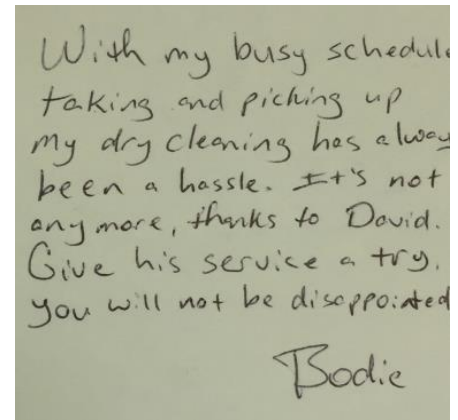 With my busy schedule
taking and picking up
my dry cleaning has alway
been a hassle. It's not
anymore, thanks to David.
Give his service a try.
you will not be disappointed
Bodie